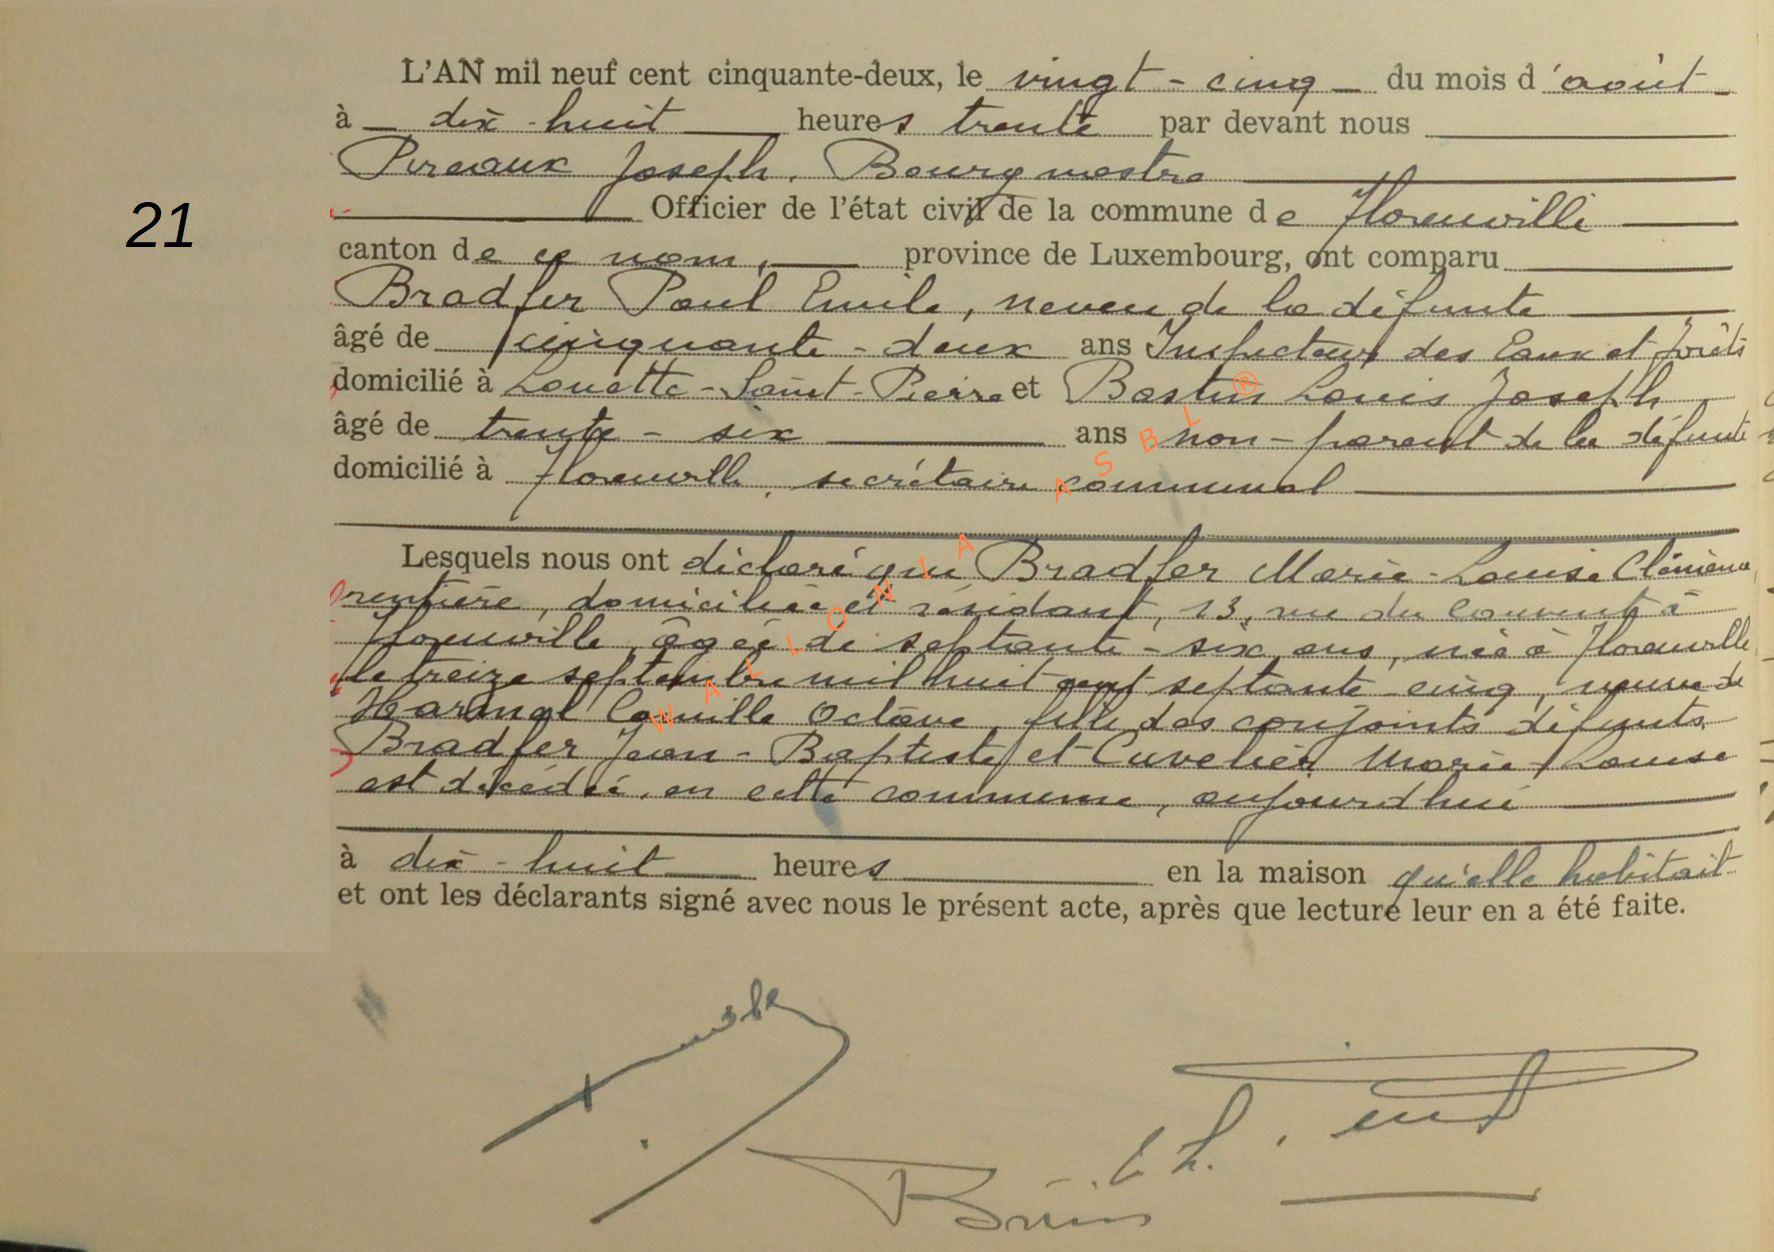 L'AN mil neuf cent cinquante-deux, le vingt-cinq du mois d'août
à dix-huit heures trente par devant nous
Pireaux Joseph, Bourgmestre
21
Officier de l'état civil de la commune de Florenville
canton de ce nom, province de Luxembourg, ont comparu
Bradfer Paul Emile, neveu de la défunte
âgé de cinquante-deux ans Inspecteur des Eaux et Forêts
domicilié à Louette-Saint-Pierre et Bastin Louis Joseph
âgé de trente-six ans non-parent de la défunte
domicilié à Florenville, secrétaire communal
Lesquels nous ont déclaré que Bradfer Marie-Louise Clémence
rentière, domiciliée et résidant, 13, rue du Couvent à
Florenville, âgée de septante-six ans, née à Florenville
le treize septembre mil huit cent septante cinq, veuve de
Camille Octave, fille des conjoints défunts
Bradfer Jean-Baptiste et Cuvelier Marie-Louise
est décédée, en cette commune, aujourd'hui
à dix-huit heures en la maison qu'elle habitait
et ont les déclarants signé avec nous le présent acte, après que lecture leur en a été faite.
WALLONIA ASBL ®